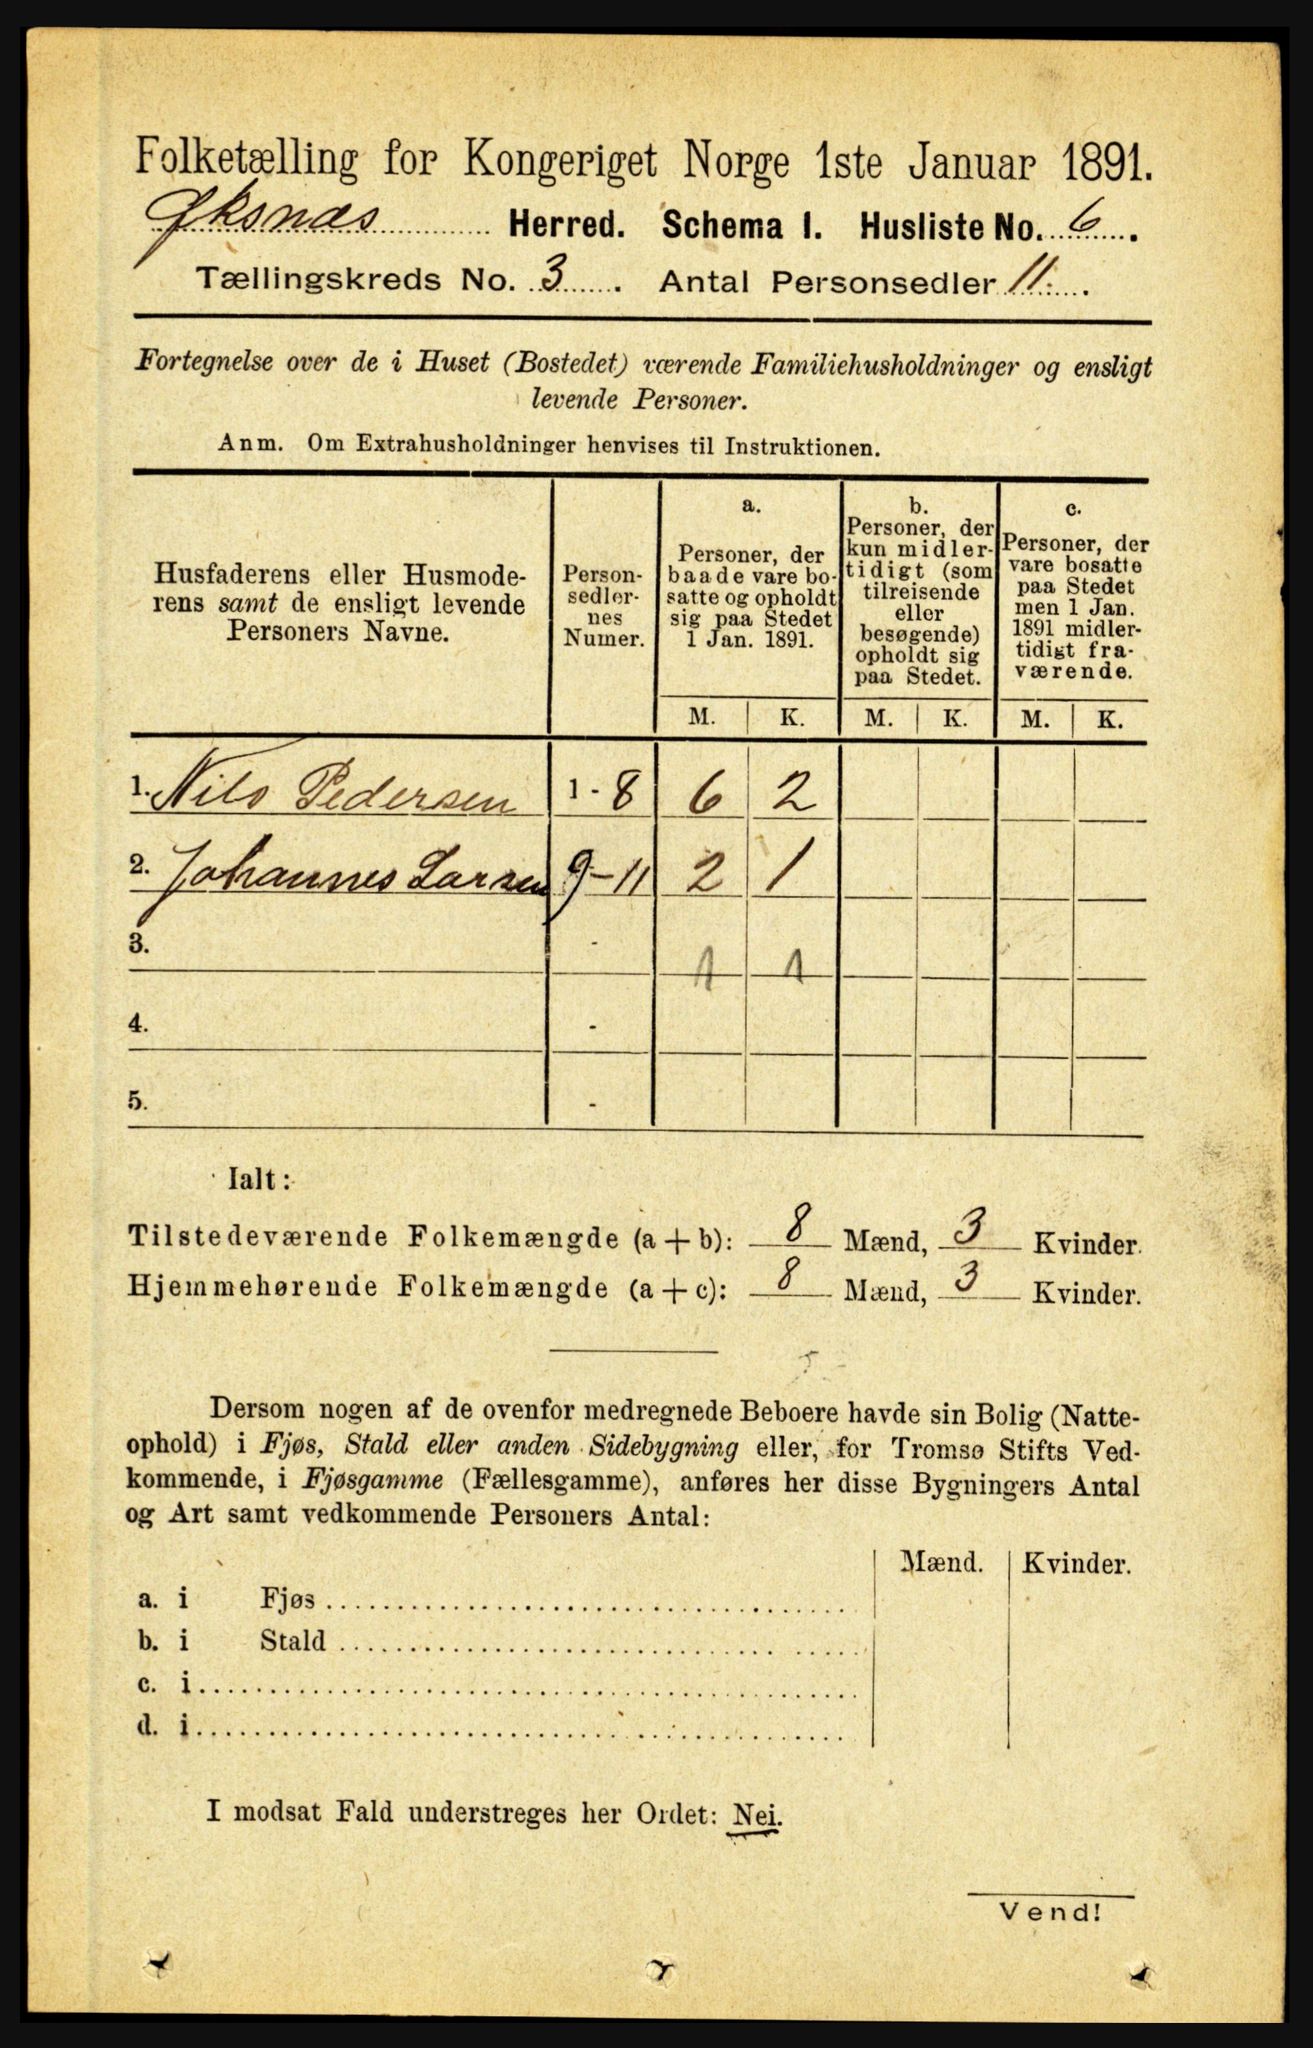 Folketælling for Kongeriget Norge 1ste Januar 1891.
Øksnæs Herred. Schema I. Husliste No. 6.
Tællingskreds No. 3. Antal Personsedler 11.
Fortegnelse over de i Huset (Bostedet) værende Familiehusholdninger og ensligt
levende Personer.
Anm. Om Extrahusholdninger henvises til Instruktionen.
Husfaderens eller Husmode-
rens samt de ensligt levende
Personers Navne.
Person-
sedler-
nes
Numer.
a.
Personer, der
baade vare bo-
satte og opholdt
sig paa Stedet
1 Jan. 1891.
b.
Personer, der
kun midler-
tidigt (som
tilreisende
eller
besøgende)
opholdt sig
paa Stedet.
c.
Personer, der
vare bosatte
paa Stedet
men 1 Jan.
1891 midler-
tidigt fra-
værende.
M. K. M. K. M. K.
1. Nils Pedersen 1 - 8 6 2
2. Johannes Larsen 9 - 11 2 1
3. - 1 1
4. -
5. -
Ialt:
Tilstedeværende Folkemængde (a + b): 8 Mænd, 3 Kvinder.
Hjemmehørende Folkemængde (a + c): 8 Mænd, 3 Kvinder.
Dersom nogen af de ovenfor medregnede Beboere havde sin Bolig (Natte-
ophold) i Fjøs, Stald eller anden Sidebygning eller, for Tromsø Stifts Ved-
kommende, i Fjøsgamme (Fællesgamme), anføres her disse Bygningers Antal
og Art samt vedkommende Personers Antal:
Mænd. Kvinder.
a. i Fjøs
b. i Stald
c. i
d. i
I modsat Fald understreges her Ordet: Nei.
Vend!